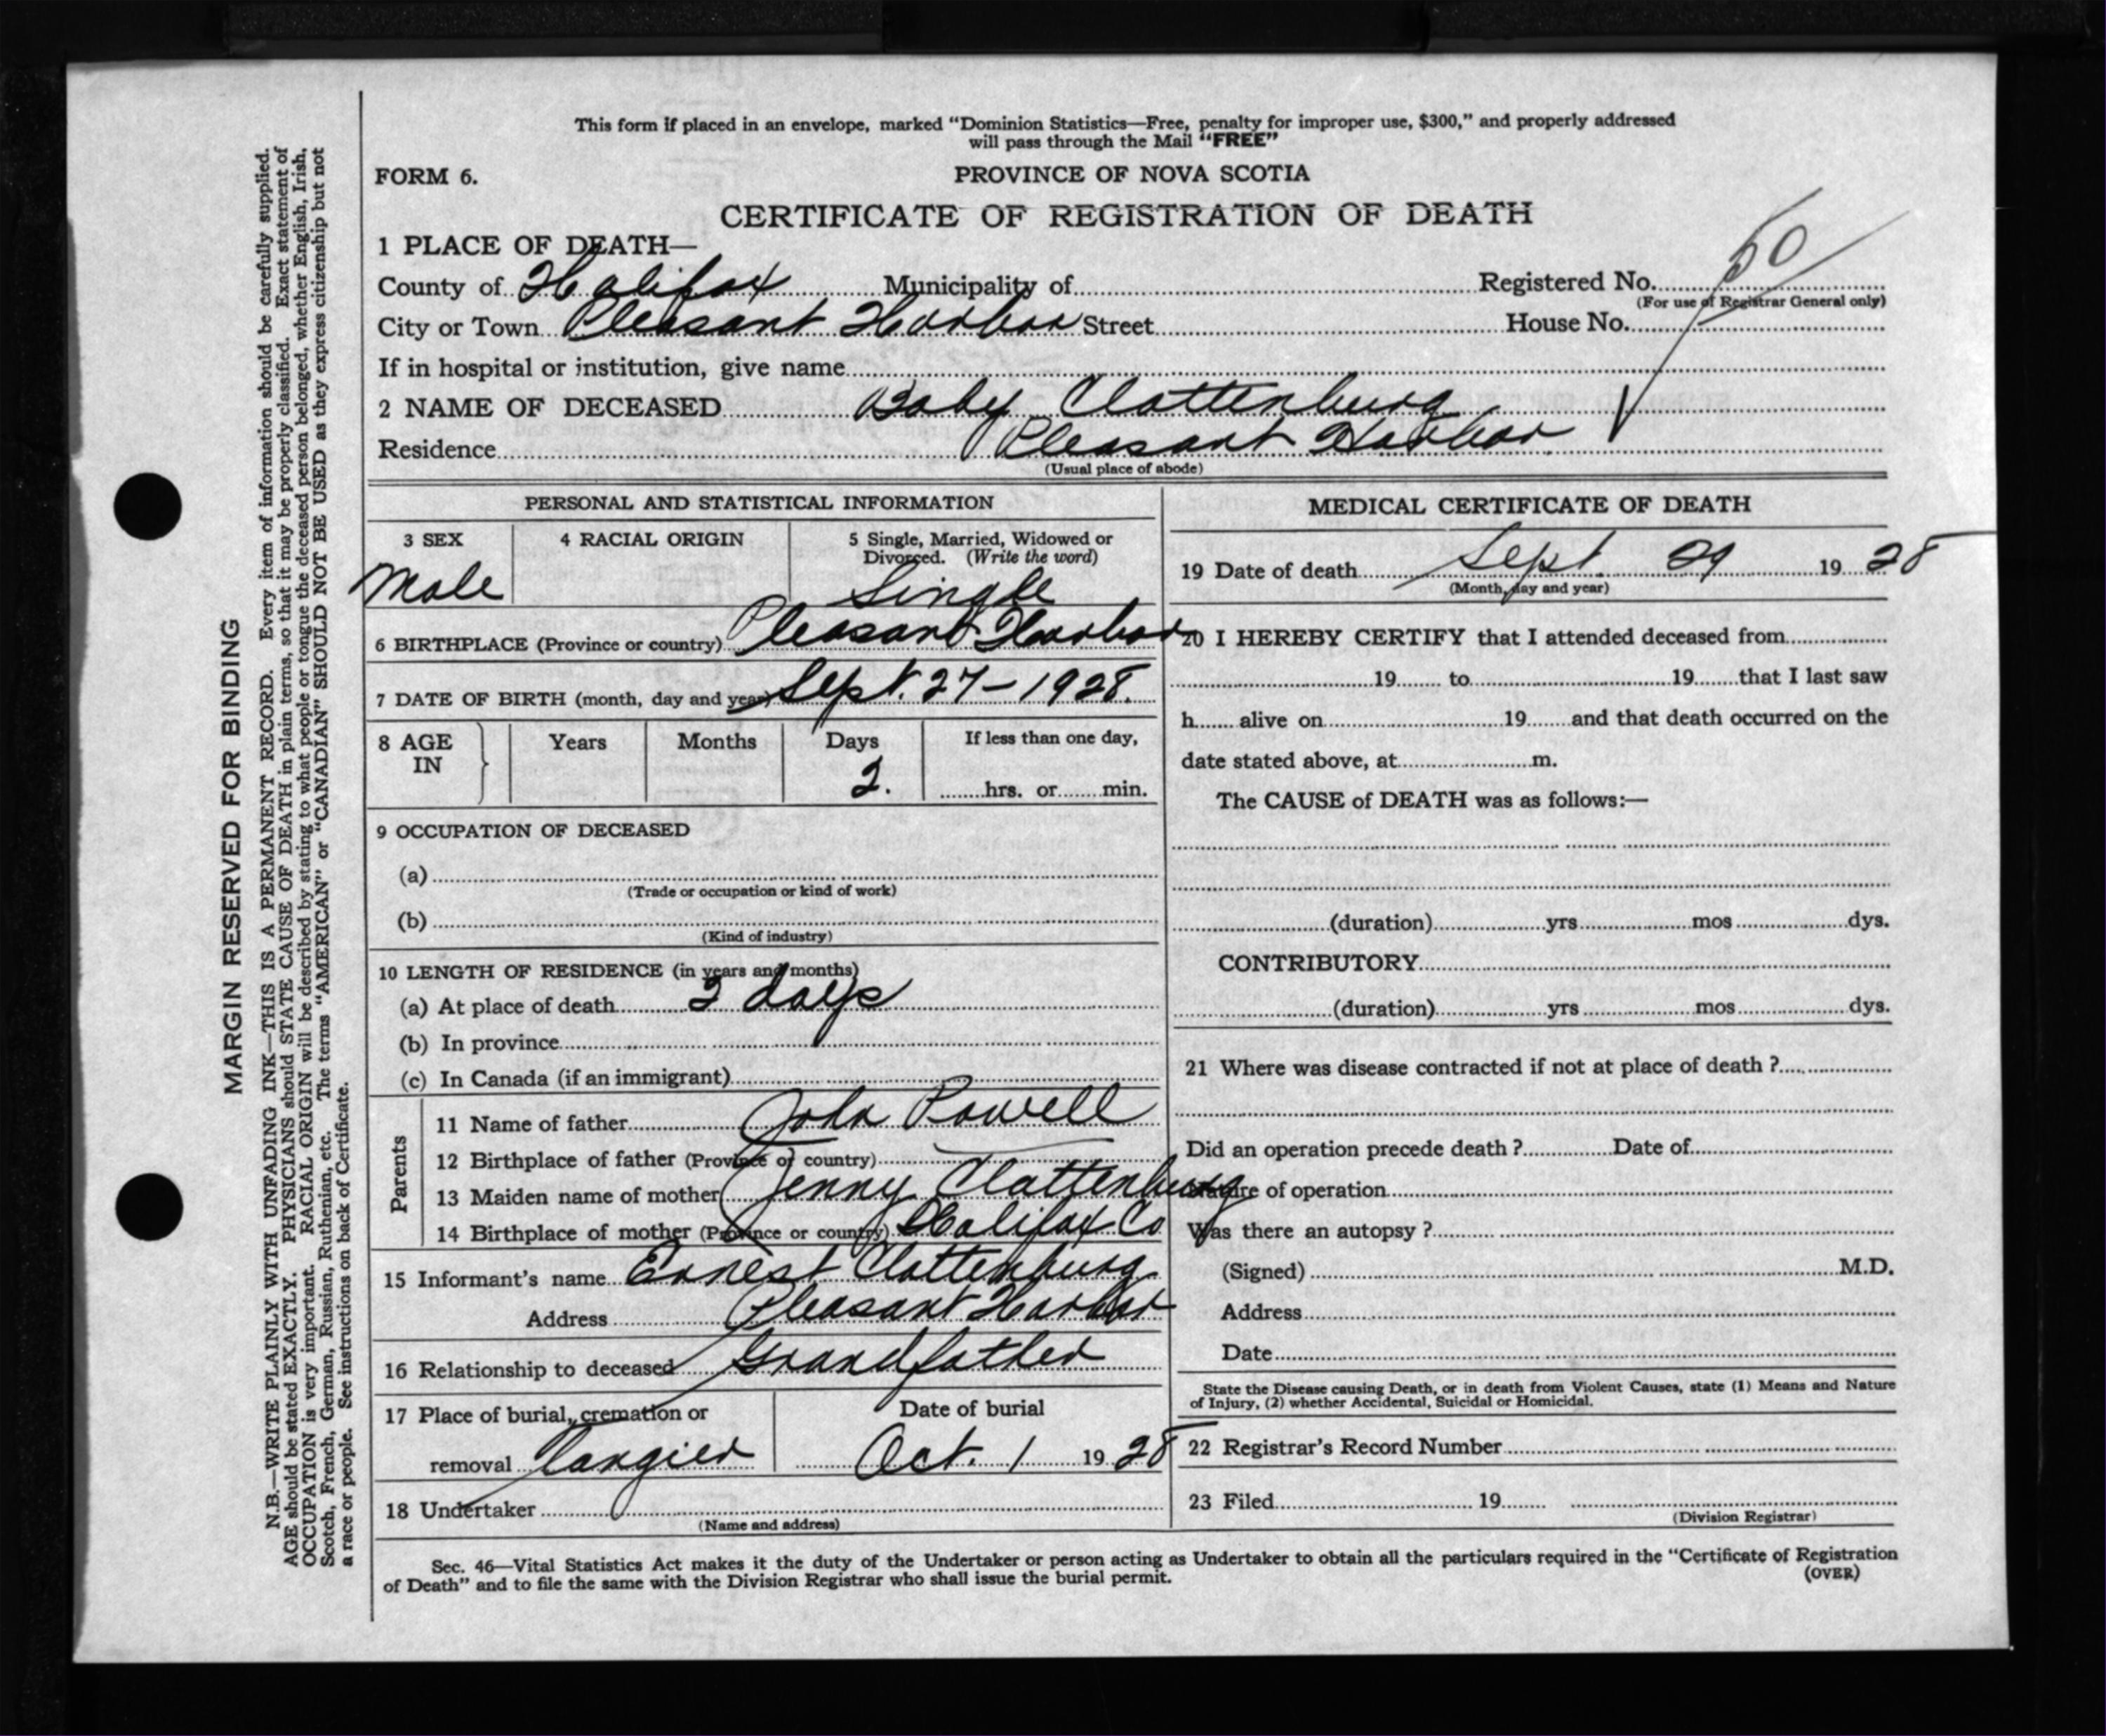 This form if placed in an envelope, marked “Dominion Statistics—Free, penalty for improper use, $300,” and properly addressed
will pass through the Mail “FREE”
FORM 6.
PROVINCE OF NOVA SCOTIA
CERTIFICATE OF REGISTRATION OF DEATH
1 PLACE OF DEATH—
County of Halifax Municipality of Registered No. 50
(For use of Registrar General only)
City or Town Pleasant Harbor Street House No.
If in hospital or institution, give name
2 NAME OF DECEASED Baby Clattenburg
Residence Pleasant Harbor
(Usual place of abode)
PERSONAL AND STATISTICAL INFORMATION
3 SEX 4 RACIAL ORIGIN 5 Single, Married, Widowed or
Divorced. (Write the word)
Male Single
6 BIRTHPLACE (Province or country) Pleasant Harbor
7 DATE OF BIRTH (month, day and year) Sept. 27 – 1928.
8 AGE IN Years Months Days If less than one day,
2. hrs. or min.
9 OCCUPATION OF DECEASED
(a)
(Trade or occupation or kind of work)
(b)
(Kind of industry)
10 LENGTH OF RESIDENCE (in years and months)
(a) At place of death 2 days
(b) In province
(c) In Canada (if an immigrant)
Parents
11 Name of father John Powell
12 Birthplace of father (Province or country)
13 Maiden name of mother Jenny Clattenburg
14 Birthplace of mother (Province or country) Halifax Co
15 Informant’s name Ernest Clattenburg
Address Pleasant Harbor
16 Relationship to deceased Grandfather
17 Place of burial, cremation or Date of burial
removal Tangier Oct. 1 19 28
18 Undertaker
(Name and address)
MEDICAL CERTIFICATE OF DEATH
19 Date of death Sept. 29 19 28
(Month, day and year)
20 I HEREBY CERTIFY that I attended deceased from
19 to 19 that I last saw
h alive on 19 and that death occurred on the
date stated above, at m.
The CAUSE of DEATH was as follows:—
(duration) yrs mos dys.
CONTRIBUTORY
(duration) yrs mos dys.
21 Where was disease contracted if not at place of death ?
Did an operation precede death ? Date of
Nature of operation
Was there an autopsy ?
(Signed) M.D.
Address
Date
State the Disease causing Death, or in death from Violent Causes, state (1) Means and Nature
of Injury, (2) whether Accidental, Suicidal or Homicidal.
22 Registrar’s Record Number
23 Filed 19
(Division Registrar)
Sec. 46—Vital Statistics Act makes it the duty of the Undertaker or person acting as Undertaker to obtain all the particulars required in the “Certificate of Registration
of Death” and to file the same with the Division Registrar who shall issue the burial permit.
(OVER)
MARGIN RESERVED FOR BINDING
N.B.—WRITE PLAINLY WITH UNFADING INK—THIS IS A PERMANENT RECORD. Every item of information should be carefully supplied.
AGE should be stated EXACTLY. PHYSICIANS should STATE CAUSE OF DEATH in plain terms, so that it may be properly classified. Exact statement of
OCCUPATION is very important. RACIAL ORIGIN will be described by stating to what people or tongue the deceased person belonged, whether English, Irish,
Scotch, French, German, Russian, Ruthenian, etc. The terms “AMERICAN” or “CANADIAN” SHOULD NOT BE USED as they express citizenship but not
a race or people. See instructions on back of Certificate.